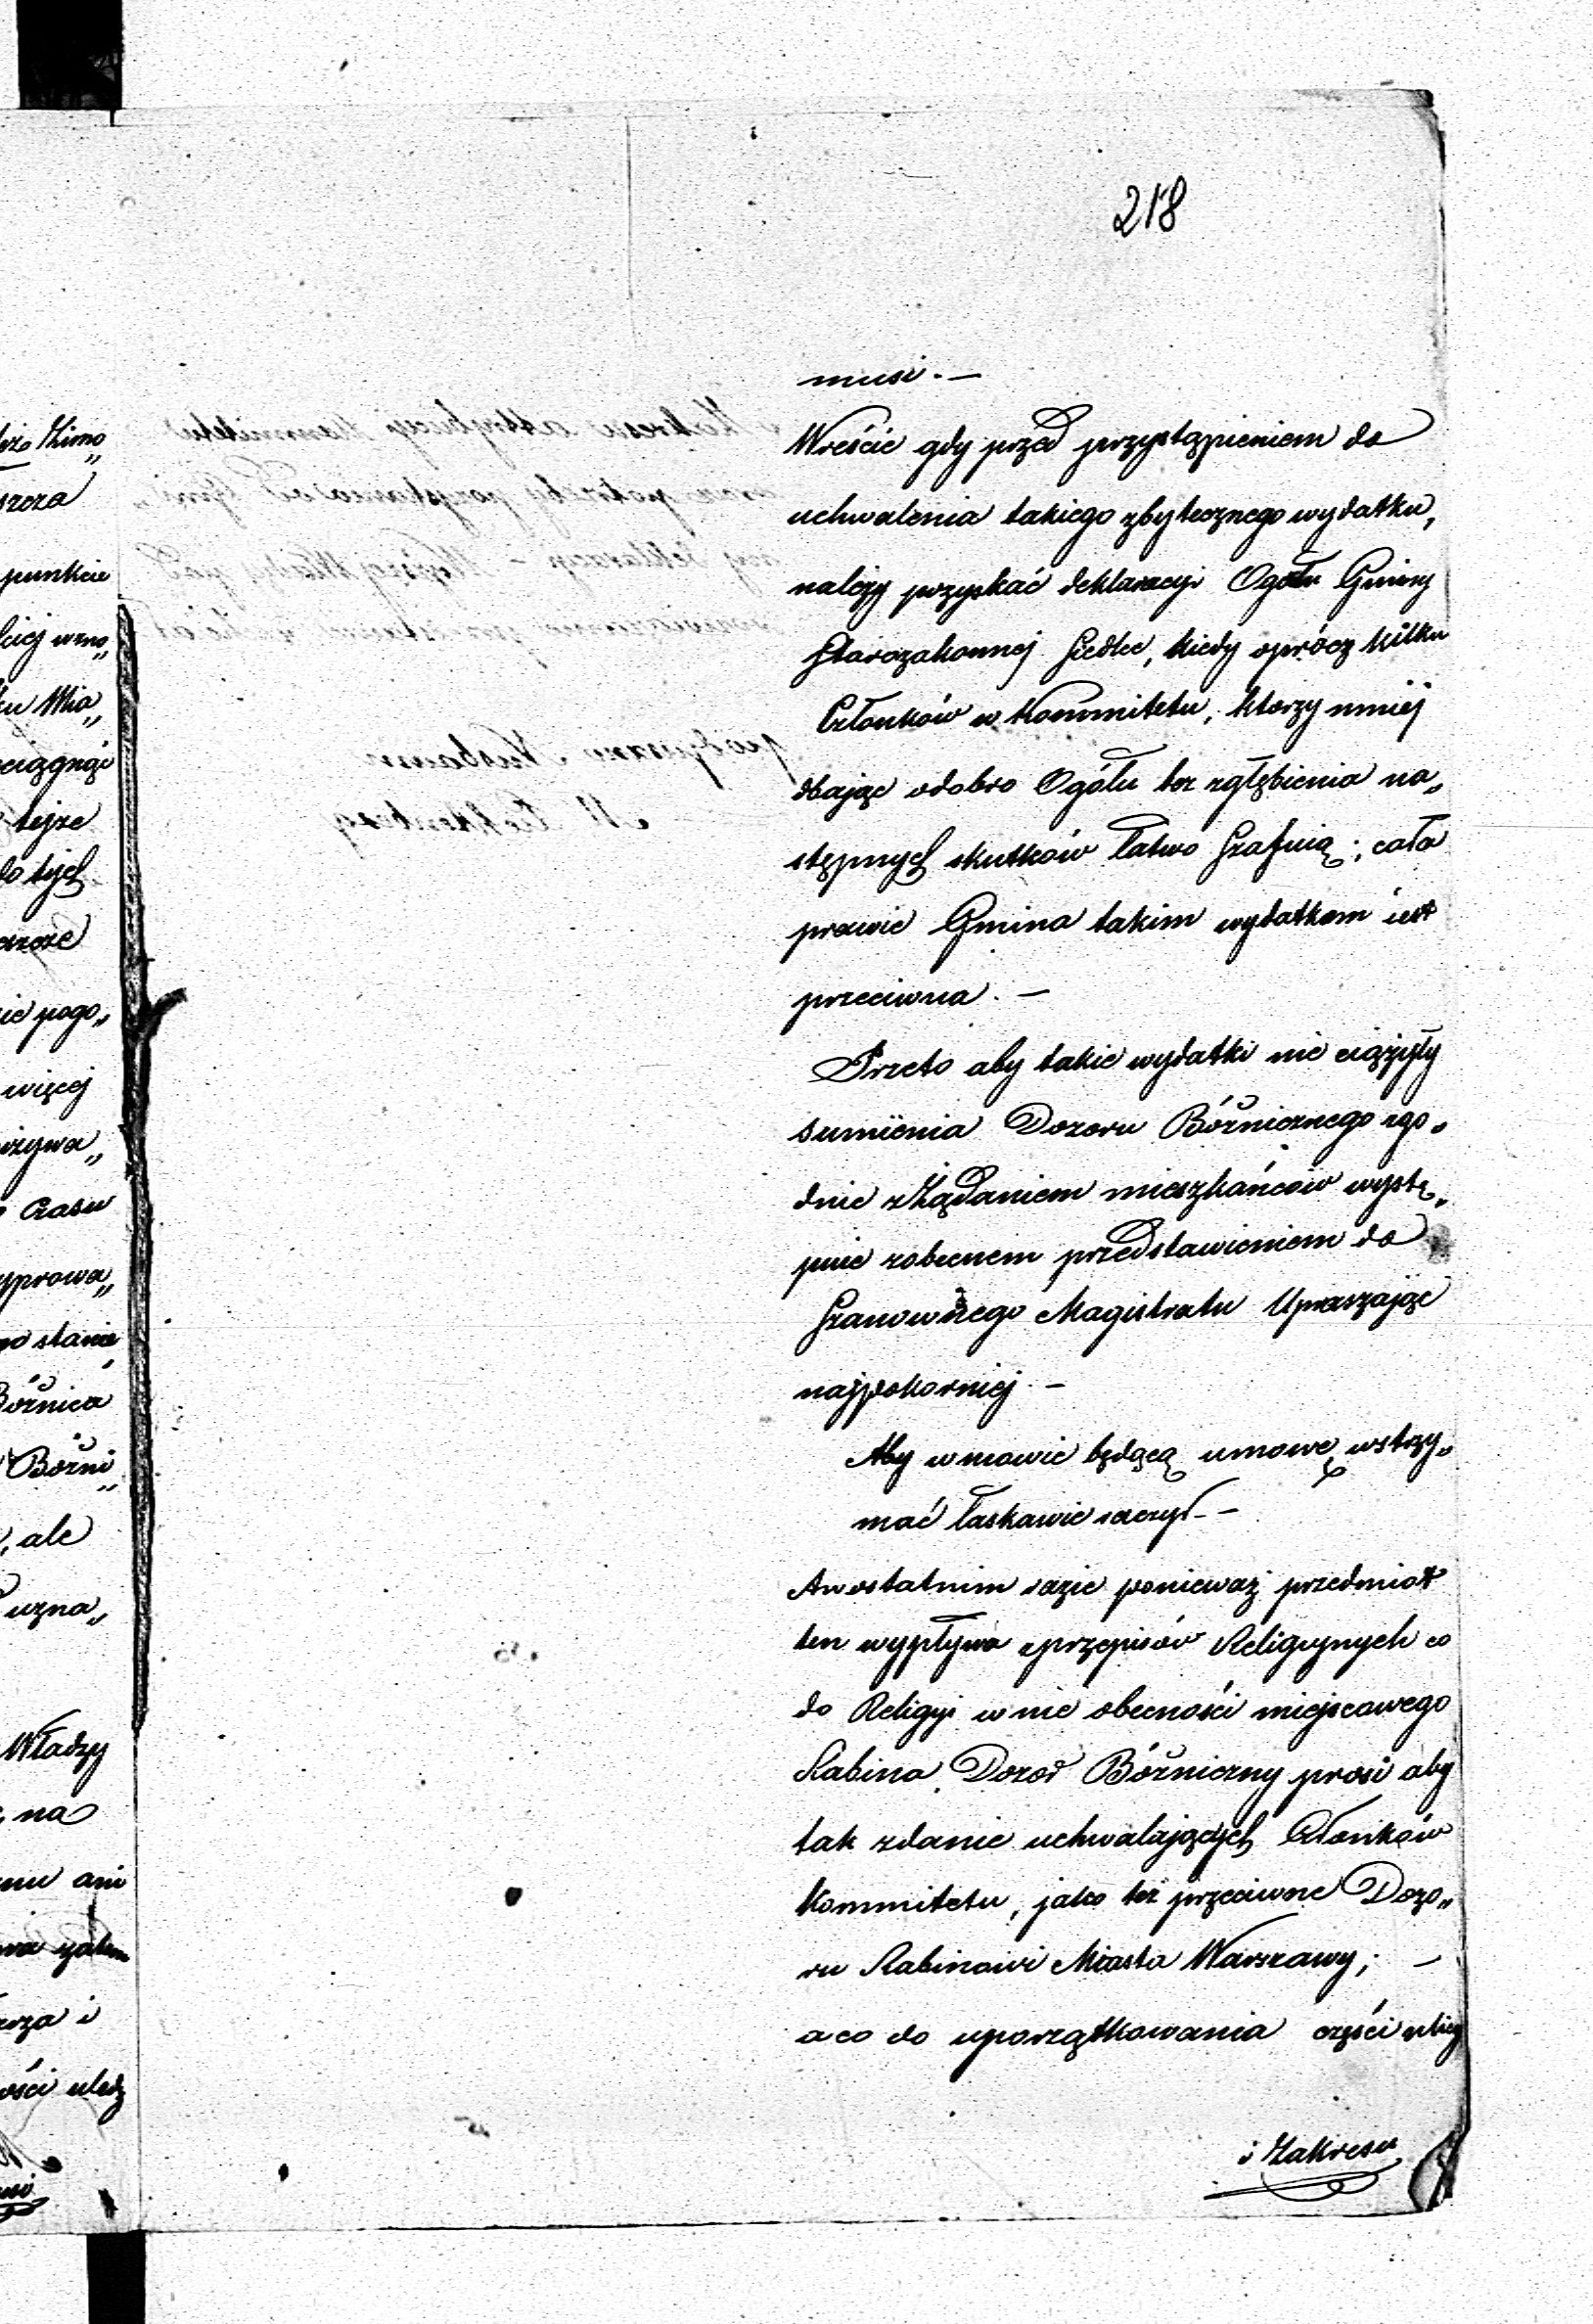 218
musi. —
Wreście gdy przed przystąpieniem do
uchwalenia takiego zbytecznego wydatku,
należy pozyskać deklaracyi Ogółu Gminy
Starozakonnej Siedlec, kiedy oprócz kilku
Członków w Kommitetu, ktorzy mniej
dbając o dobro Ogółu bez zgłębienia na„
stępnych skutków łatwo Szafują; cała
prawie Gmina takim wydatkom iest
przeciwna. —
Przeto aby takie wydatki nie ciążyły
sumienia Dozoru Bóżnicznego zgo„
dnie z Żądaniem mieszkańców wystę„
puie z obecnem przedstawieniem do
Szanownego Magistratu Upraszając
najpokorniej —
Aby w mowie będącą umowę wstrzy„
mać łaskawie raczył —
A w ostatnim razie ponieważ przedmiot
ten wypływa z przepisów Religijnych co
do Religyi w nie obecności miejscowego
Rabina Dozor Bóżniczny prosi aby
tak zdanie uchwalających Członków
Kommitetu, jako też przeciwne Dozo„
ru Rabinowi Miasta Warszawy; —
a co do uporządkowania części ulicy
i Zakresu
punkcie
tejże
do tych
więcej
Czasu
Bóżnica
Bóżni„
, ale
uzna„
Władzy
na